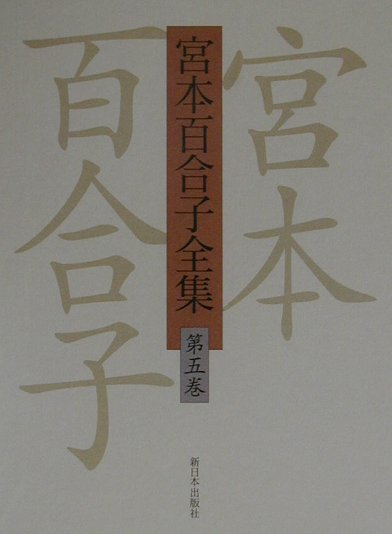 宮本
百合子
宮本百合子全集
第五巻
新日本出版社